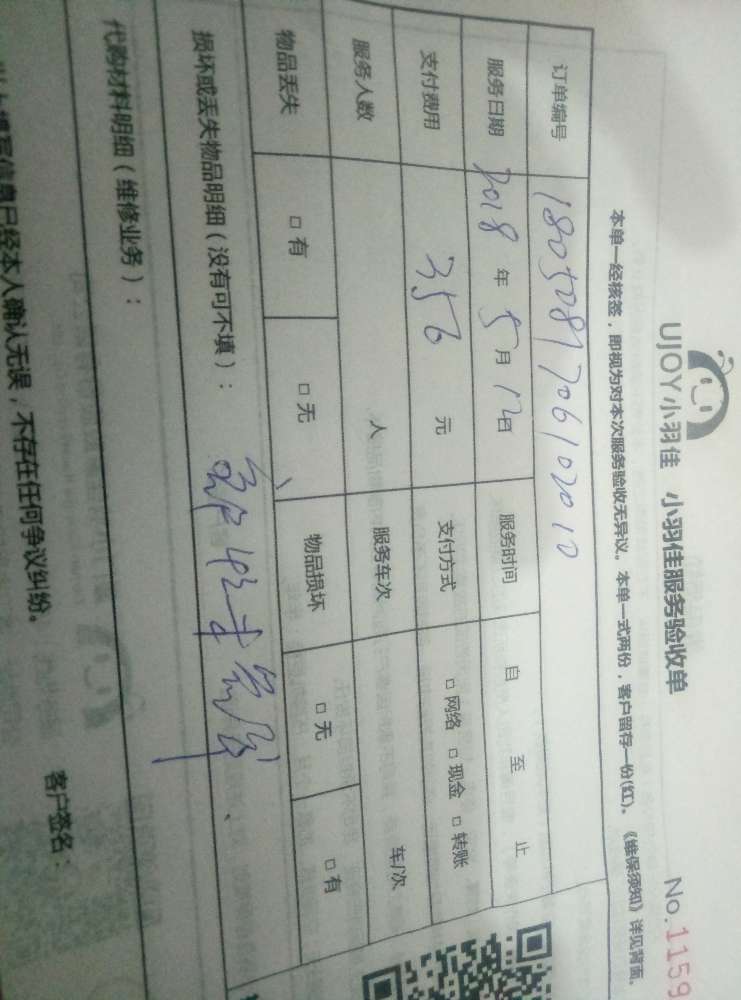 UJOY小羽佳 小羽佳服务验收单 No.1159
本单一经核签，即视为对本次服务验收无异议。本单一式两份，客户留存一份(红)。《维保须知》详见背面。
订单编号 1805081706102010
服务日期 2018年5月12日 服务时间 自 至 止
支付费用 356元 支付方式 □网络 □现金 □转账
服务人数 人 服务车次 车/次
物品丢失 □有 □无 物品损坏 □无 □有
损坏或丢失物品明细（没有可不填）：
代购材料明细（维修业务）：
信息已经本人确认无误，不存在任何争议纠纷。 客户签名：